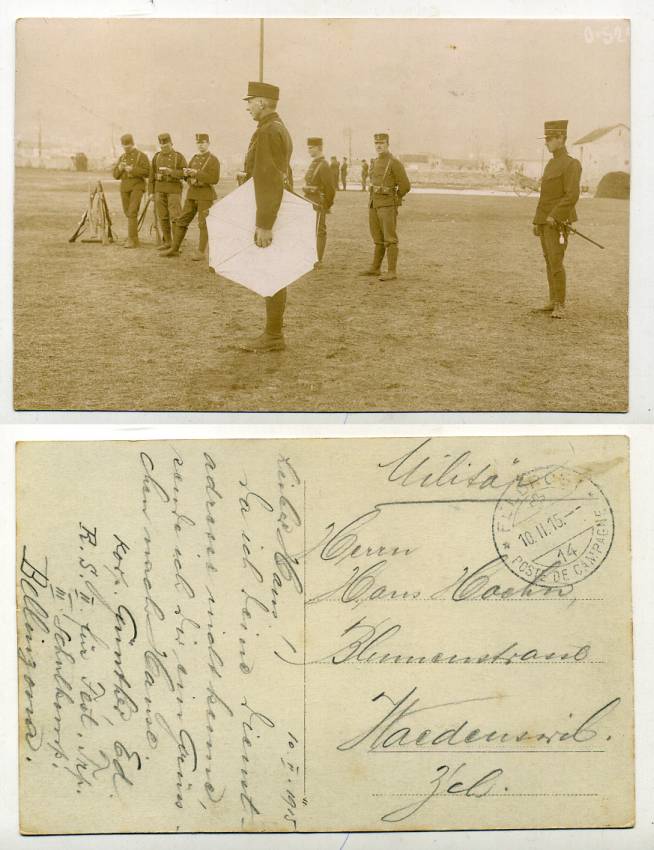 Militär
FELDPOST
10.II.15.
14
POSTE DE CAMPAGNE
Herrn
Hans Hoehn,
Blumenstrasse
Waedenswil.
Zch.
10. II. 1915
Lieber Hans!
Da ich deine Dienst-
adresse nicht kenne,
sende ich dir ein Grüss-
chen nach Hause
Korp. Günther Ed
R. S. II für Fest. Trp.
III Schulkomp.
Bellinzona.